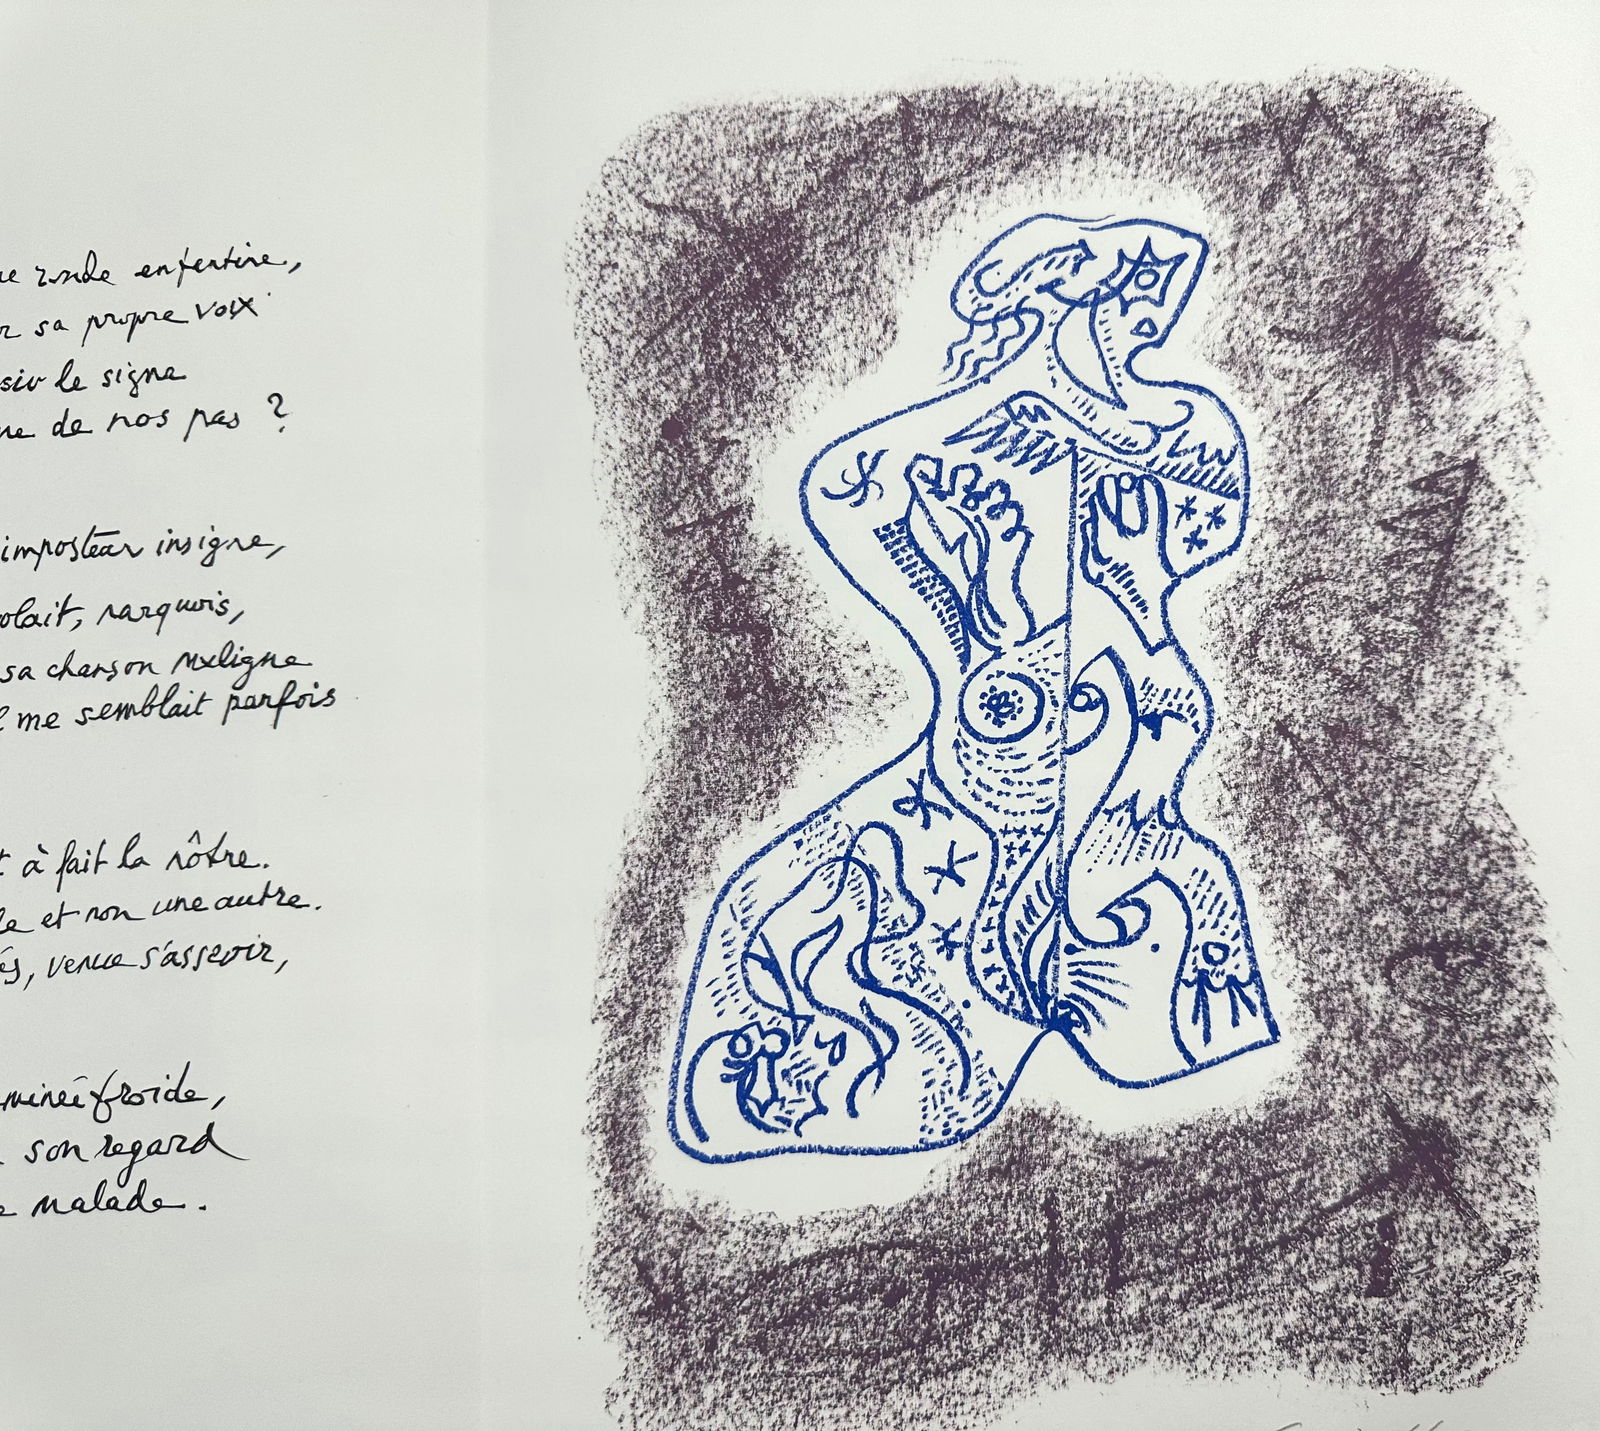 ronde enfantine,
sa propre voix
le signe
de nos pas ?
imposteur insigne,
olait, narquois,
sa chanson maligne
me semblait parfois
à fait la nôtre.
et non une autre.
venue s'asseoir,
froide,
son regard
malade.